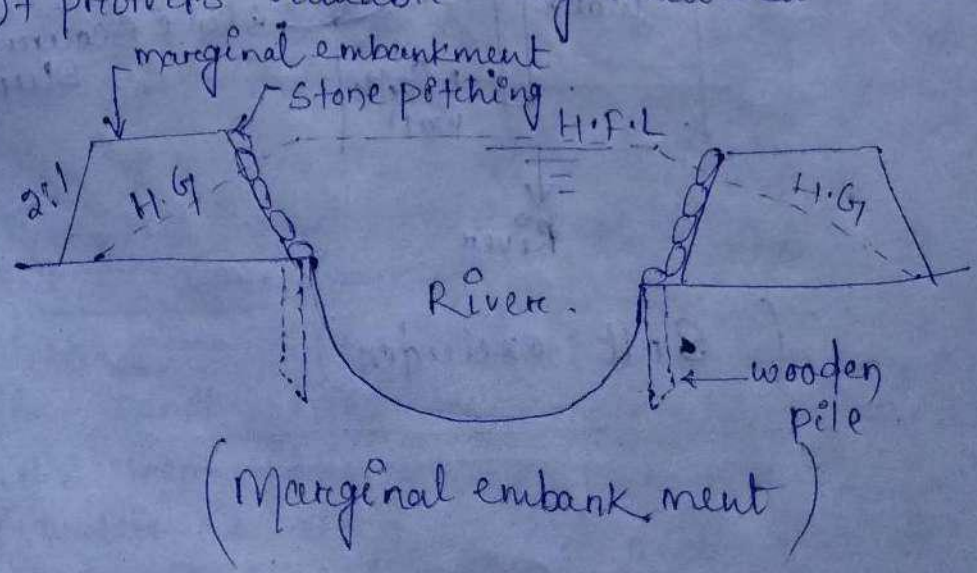 of
marginal embankment
stone pitching
H.F.L
2:1
H.G
H.G
River.
wooden
pile
(Marginal embankment)